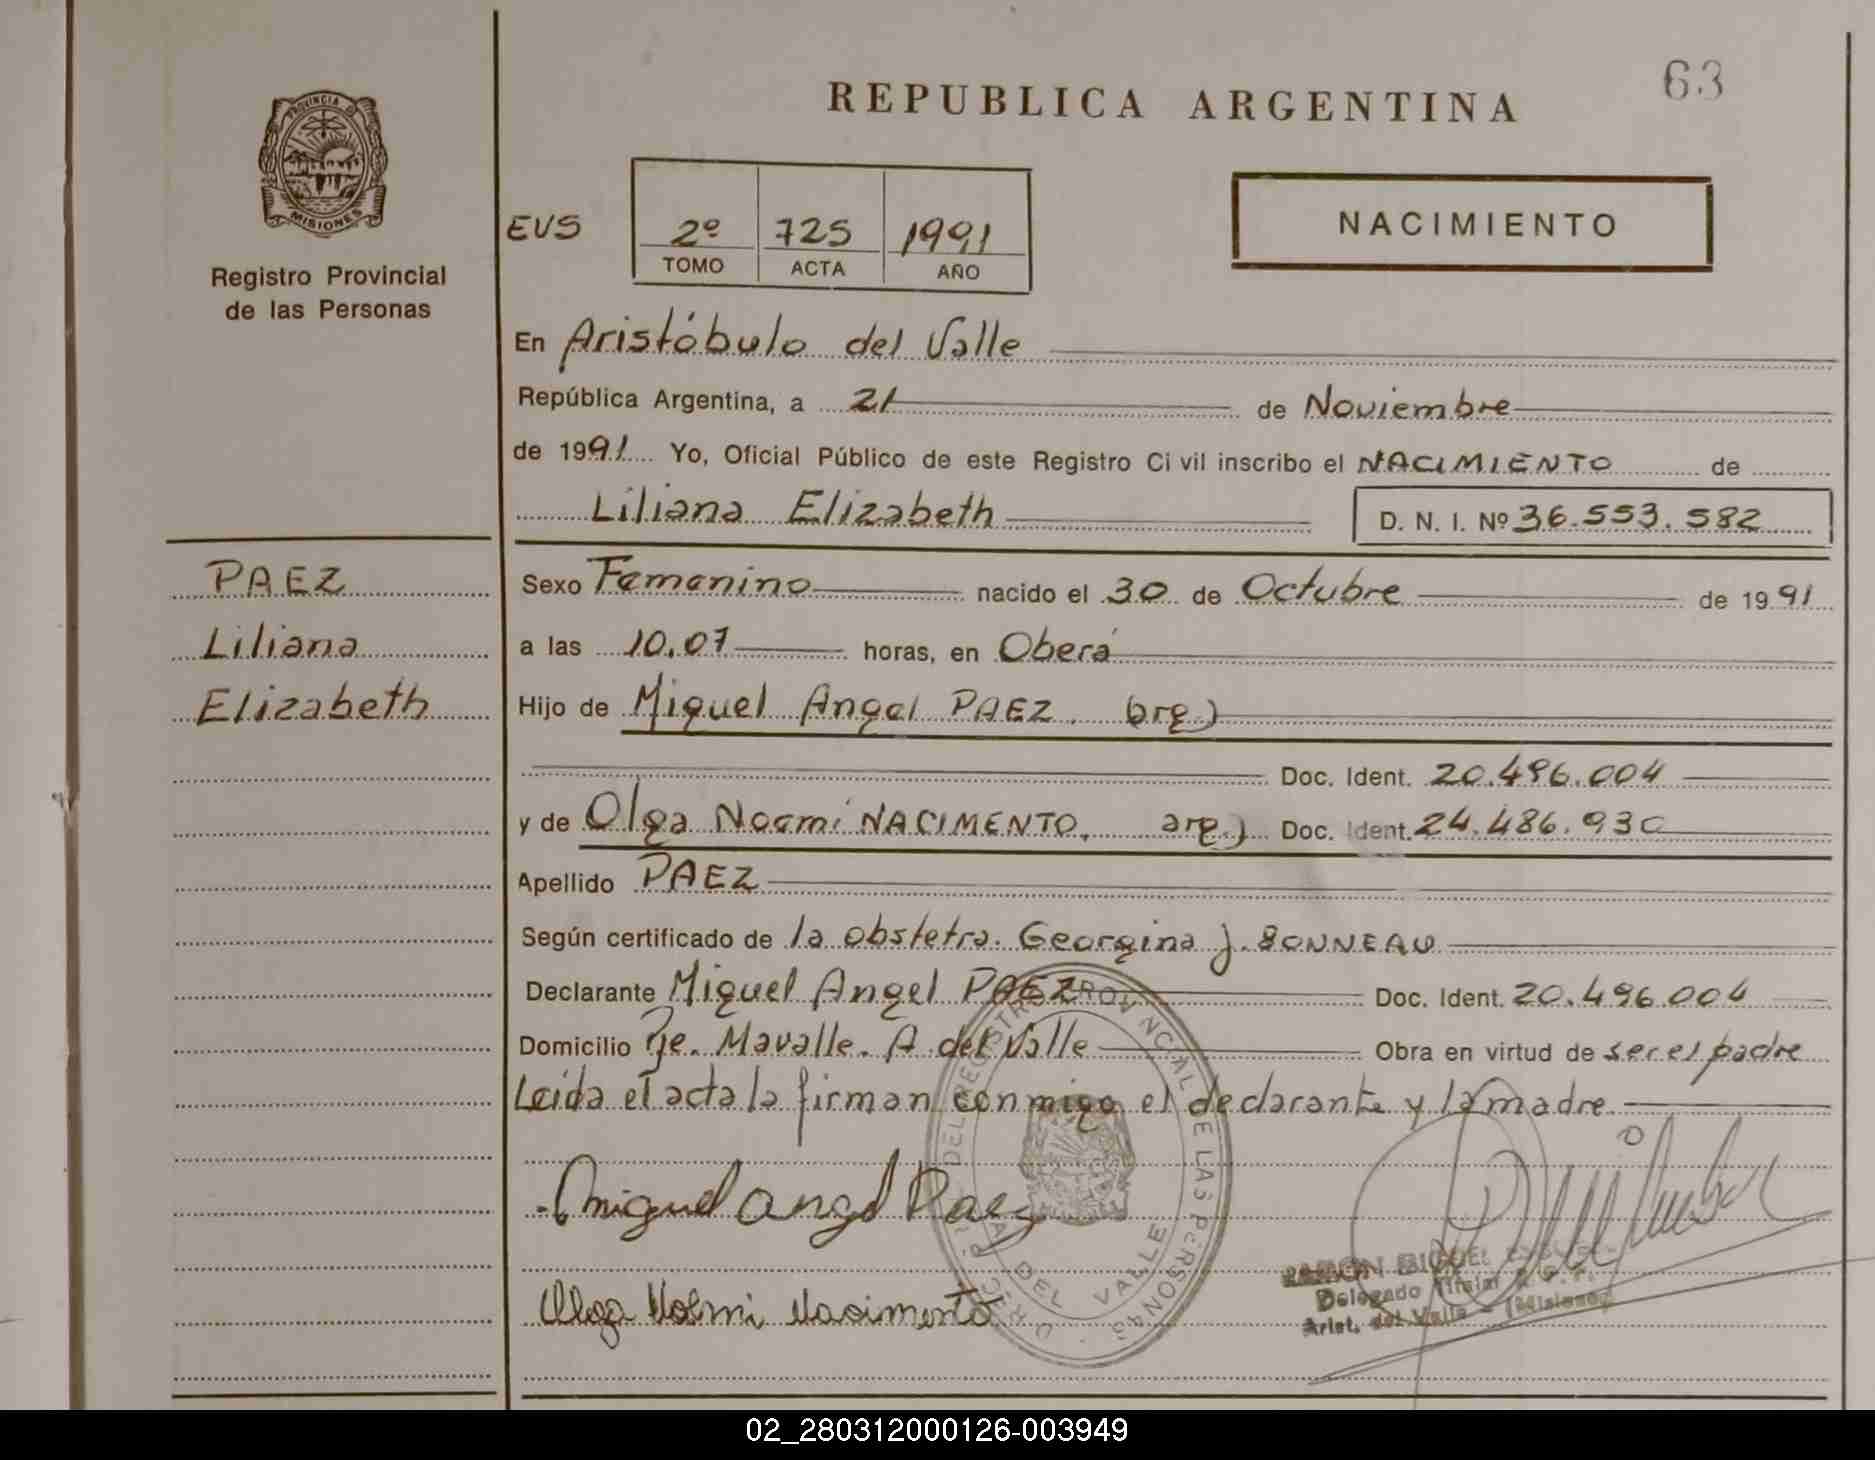 63
REPUBLICA ARGENTINA
PROVINCIA D
MISIONES
Registro Provincial
de las Personas
EVS
2º 725 1991
TOMO ACTA AÑO
NACIMIENTO
En Aristóbulo del Valle
República Argentina, a 21 de Noviembre
de 1991 Yo, Oficial Público de este Registro Ci vil inscribo el NACIMIENTO de
Liliana Elizabeth D. N. I. Nº 36.553.582
PAEZ
Liliana
Elizabeth
Sexo Femenino nacido el 30 de Octubre de 1991
a las 10,07 horas, en Oberá
Hijo de Miguel Angel PAEZ. arg.)
Doc. Ident. 20.496.004
y de Olga Noemí NACIMENTO, arg.) Doc. Ident. 24.486.930
Apellido PAEZ
Según certificado de la obstetra. Georgina J. BONNEAU
Declarante Miguel Angel PAEZ Doc. Ident. 20.496.004
Domicilio Pje. Mavalle. A del Valle Obra en virtud de ser el padre
Leida el acta la firman conmigo el declarante y la madre
Miguel Angel Paez
Olga Noemi Nacimento
DEL REGISTRO PROVINCIAL DE LAS PERSONAS
DEL VALLE
RAMON MIGUEL
Delegado Titular
Arist. del Valle - (Misiones)
02_280312000126-003949